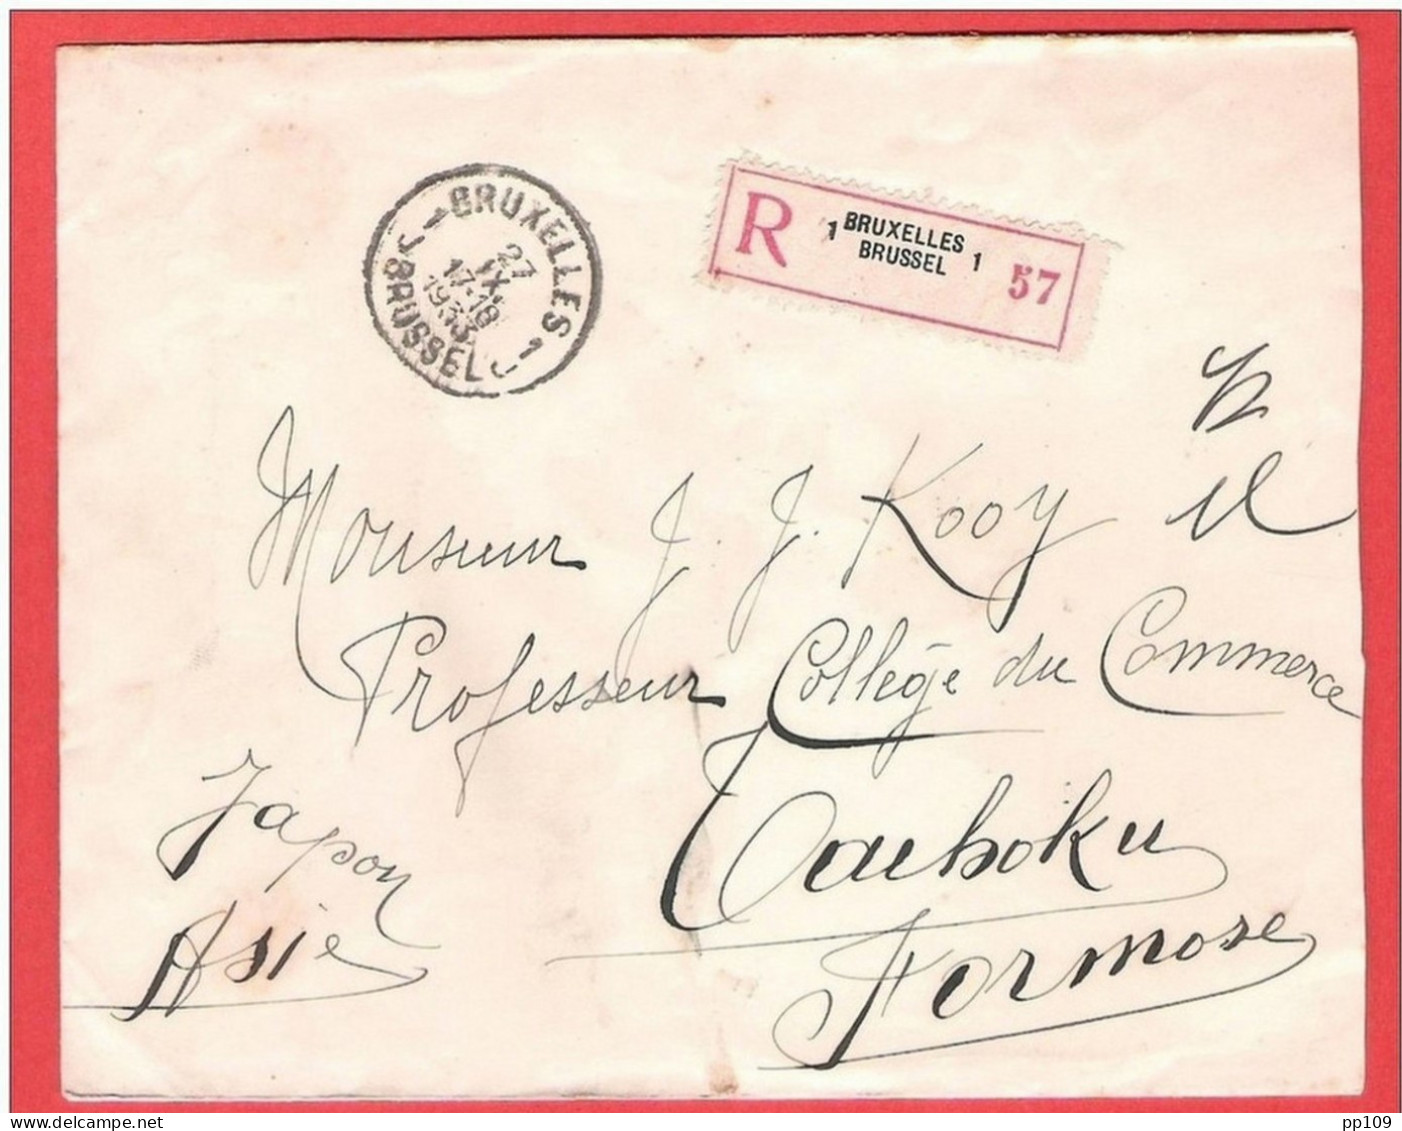 1 BRUXELLES 1
27
IX
17-18
1933
BRUSSEL
R
1 BRUXELLES
BRUSSEL 1
57
Monsieur J. J. Kooy
Professeur Collège du Commerce
Taihoku
Japon
Formose
Asie
pp109